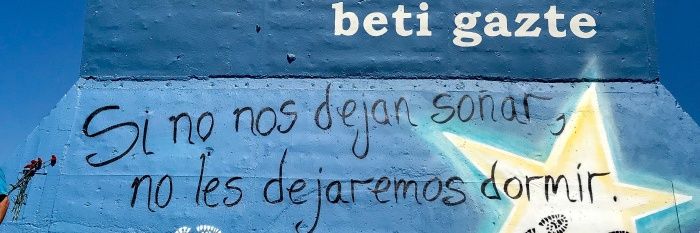 beti gazte
Si no nos dejan soñar,
no les dejaremos dormir.